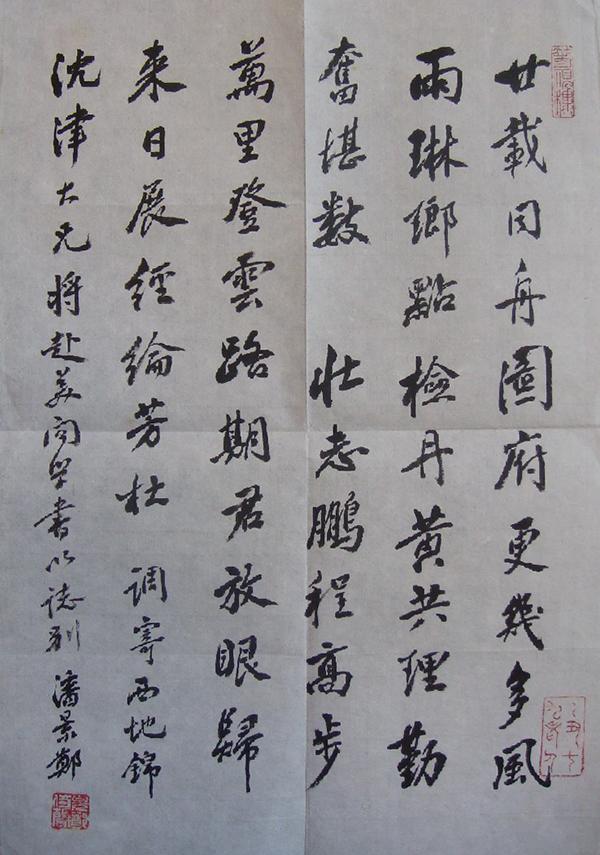 廿載同舟圖府更幾多風
雨琳鄉點檢丹黃共理勤
奮堪數 壯志鵬程高步
萬里登雲路期君放眼歸
来日展經綸芳杜 調寄西地錦
沈津大兄将赴美問學書以誌别 潘景鄭